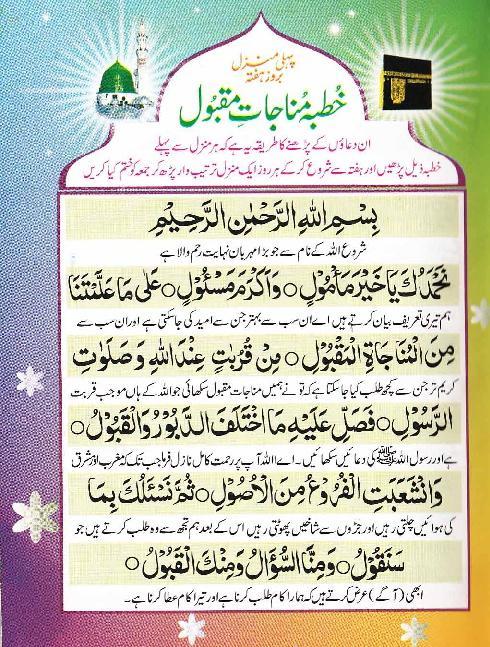 پہلی منزل
بروز ہفتہ
خُطبہ مُناجاتِ مقبول
ان دعاؤں کے پڑھنے کا طریقہ یہ ہے کہ ہر منزل سے پہلے
خطبہ ذیل پڑھیں اور ہفتہ سے شروع کر کے ہر روز ایک منزل ترتیب وار پڑھ کر جمعہ کو ختم کیا کریں
بِسْمِ اللّٰهِ الرَّحْمٰنِ الرَّحِيْمِ
شروع اللہ کے نام سے جو بڑا مہربان نہایت رحم والا ہے
نَحْمَدُكَ يَا خَيْرَ مَأْمُوْلٍ ○ وَاَكْرَمَ مَسْئُوْلٍ ○ عَلٰى مَا عَلَّمْتَنَا
ہم تیری تعریف بیان کرتے ہیں اے ان سب سے بہتر جن سے امید کی جا سکتی ہے اور ان سب سے
مِنَ الْمُنَاجَاةِ الْمَقْبُوْلِ ○ مِنْ قُرُبٰتٍ عِنْدَ اللّٰهِ وَصَلَوٰتِ
کریم تر جن سے کچھ طلب کیا جا سکتا ہے کہ تو نے ہمیں مناجات مقبول سکھائی جو اللہ کے ہاں موجب قربت
الرَّسُوْلِ ○ فَصَلِّ عَلَيْهِ مَا اخْتَلَفَ الدَّبُوْرُ وَالْقَبُوْلُ ○
ہے اور رسول اللہ ﷺ کی دعائیں سکھائیں۔ اے اللہ آپ پر رحمت کامل نازل فرما جب تک کہ مغرب اور مشرق
وَانْشَعَبَتِ الْفُرُوْعُ مِنَ الْاُصُوْلِ ○ ثُمَّ نَسْئَلُكَ بِمَا
کی ہوائیں چلتی رہیں اور جڑوں سے شاخیں پھوٹتی رہیں اس کے بعد ہم تجھ سے وہ طلب کرتے ہیں جو
سَنَقُوْلُ ○ وَمِنَّا السُّؤَالُ وَمِنْكَ الْقَبُوْلُ ○
ابھی (آگے) عرض کرتے ہیں کہ ہمارا کام طلب کرنا ہے اور تیرا کام عطا کرنا ہے۔